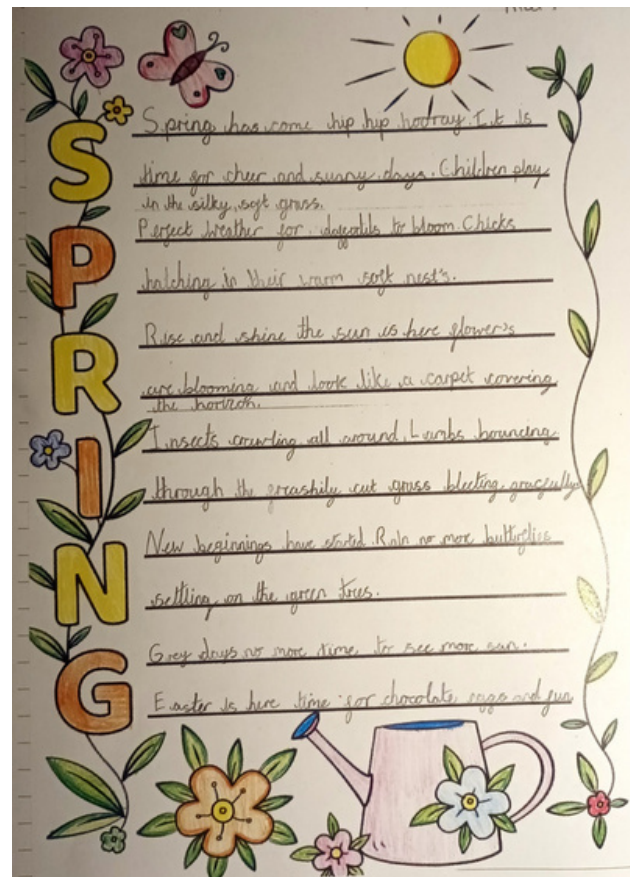 S
P
R
I
N
G
Spring has come hip hip hooray. It is
time for cheer and sunny days. Children play
in the silky soft grass.
Perfect weather for daffodils to bloom. Chicks
hatching in their warm soft nest's.
Rise and shine the sun is here flower's
are blooming and look like a carpet covering
the horizon.
Insects crawling all around. Lambs bouncing
through the greashily cut grass bleeting gracefully
New beginnings have started. Rain no more butterflies
settling on the green trees.
Grey days no more time to see more sun.
Easter is here time for chocolate eggs and fun